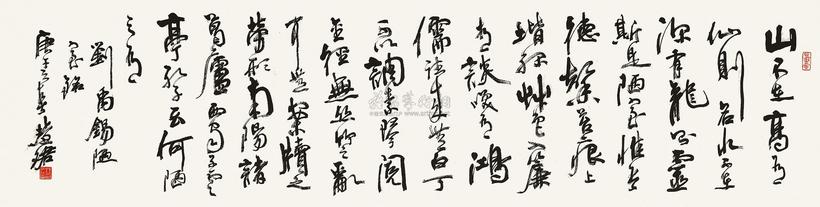 山不在高有
仙则名水不在
深有龙则灵
斯是陋室惟吾
德馨苔痕上
阶绿草色入帘
青谈笑有鸿
儒往来无白丁
可以调素琴阅
金经无丝竹之乱
耳无案牍之
劳形南阳诸
葛庐西蜀子云
亭孔子云何陋
之有
刘禹锡陋
室铭